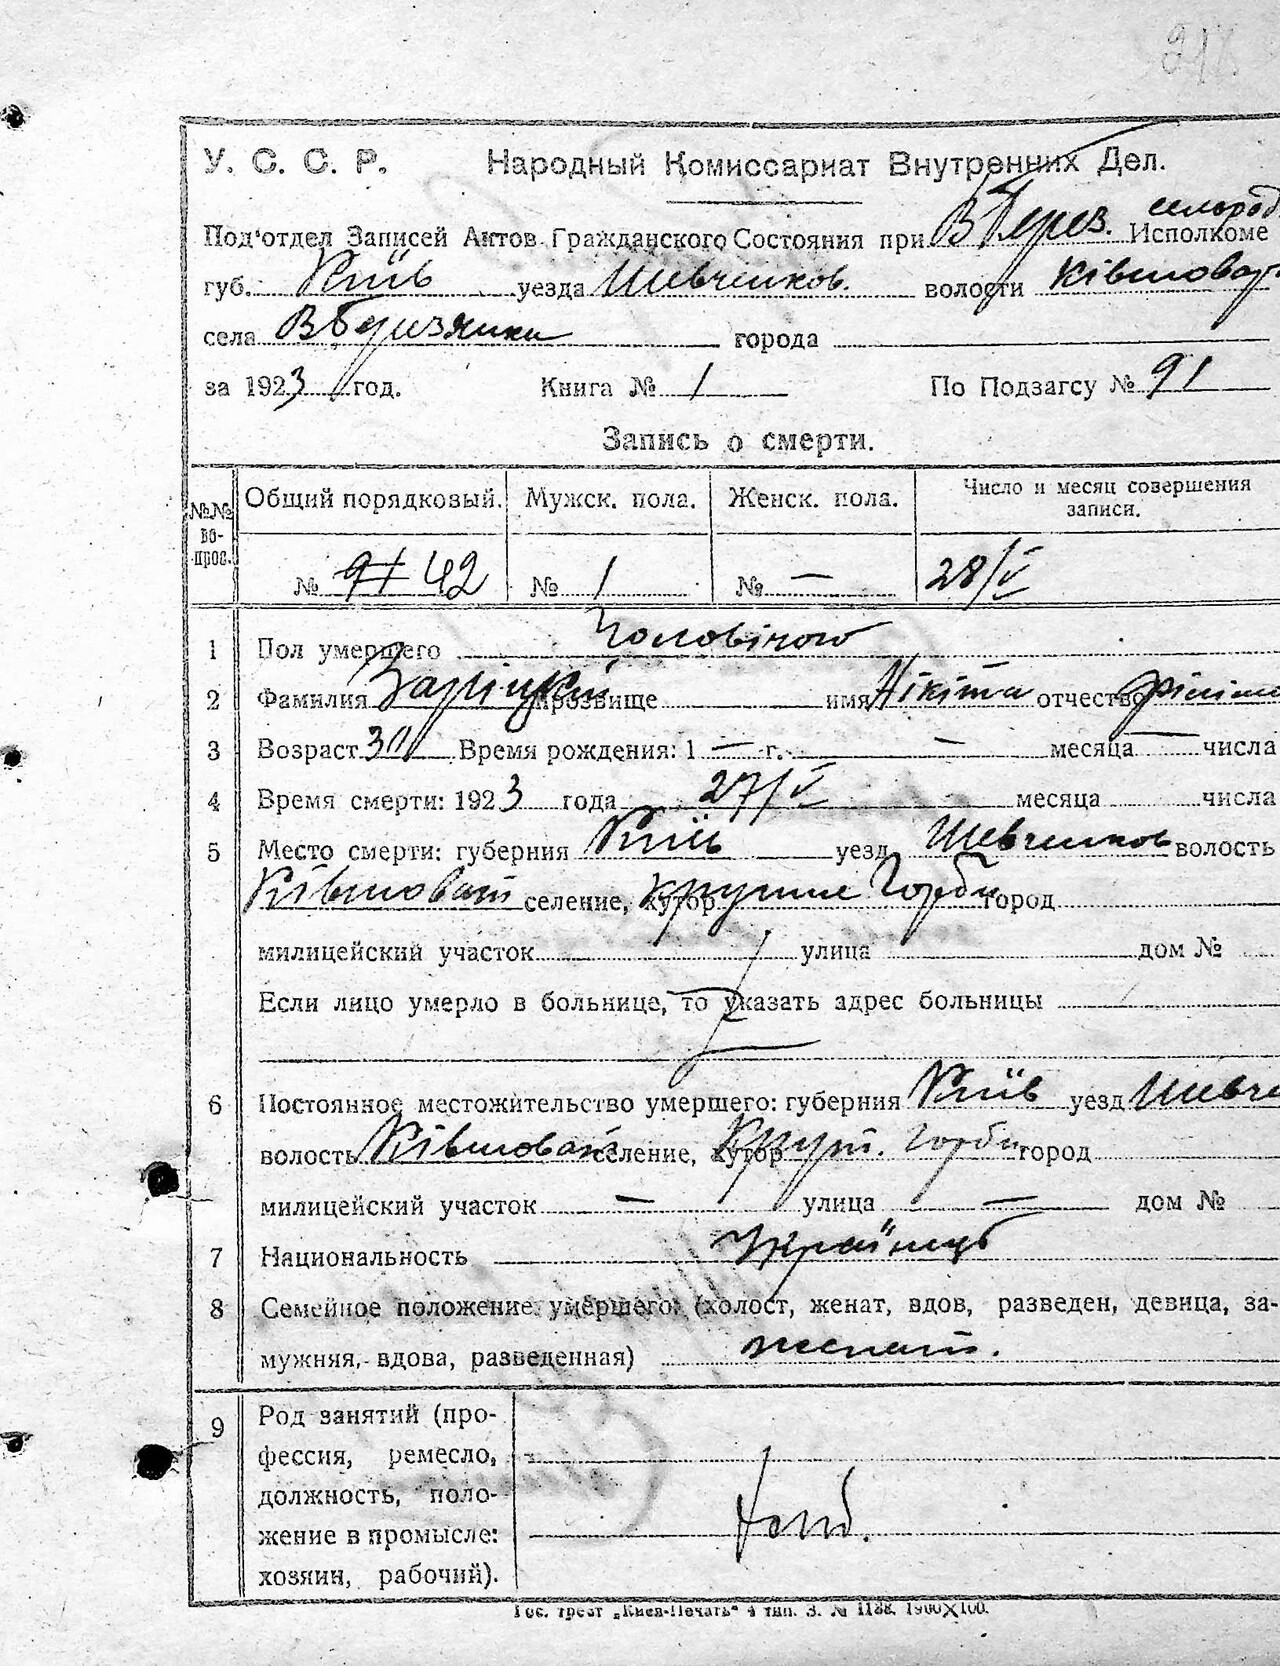 218
У. С. С. Р. Народный Комиссариат Внутренних Дел.
сельрад
Под'отдел Записей Актов Гражданского Состояния при В Берез. Исполкоме
губ. Київ уезда Шевченков. волости Ківшоват
села ВБерезянки города
за 1923 год. Книга № 1 По Подзагсу № 91
Запись о смерти.
№№ вопрос. Общий порядковый. Мужск. пола. Женск. пола. Число и месяц совершения записи.
№ 91 42 № 1 № — 28/V
1 Пол умершего Чоловічого
2 Фамилия Заріцкій прозвище имя Нікіта отчество
3 Возраст Время рождения: 1 — г. — месяца — числа
4 Время смерти: 1923 года 27/V месяца числа
5 Место смерти: губерния Київ уезд Шевченков волость
Ківшоват селение, хутор Крутые Горби город
милицейский участок улица дом №
Если лицо умерло в больнице, то указать адрес больницы
6 Постоянное местожительство умершего: губерния Київ уезд Шевче
волость Ківшоват селение, хутор Крут. Горби город
милицейский участок — улица — дом №
7 Национальность Українець
8 Семейное положение умершего: (холост, женат, вдов, разведен, девица, за-
мужняя, вдова, разведенная) женат.
9 Род занятий (про-
фессия, ремесло,
должность, поло-
жение в промысле:
хозяин, рабочий).
Гос. трест „Киев-Печать" 4 тип. З. № 1188. 1900Х100.